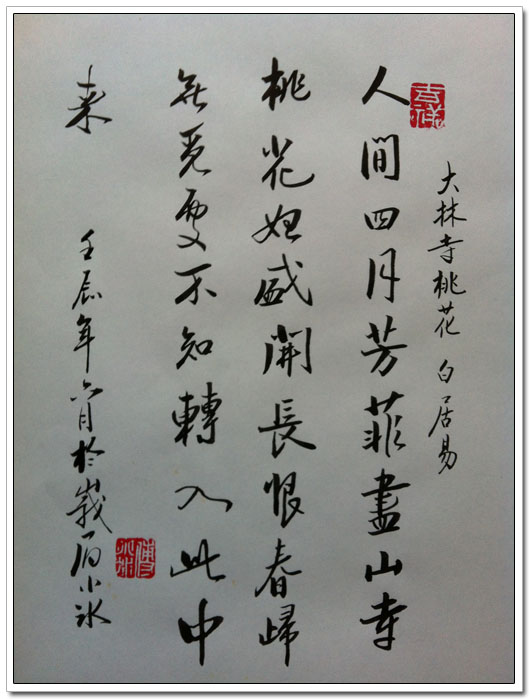 吉祥
大林寺桃花 白居易
人間四月芳菲盡山寺
桃花始盛開長恨春歸
無覓處不知轉入此中
来
壬辰年六月於 小冰